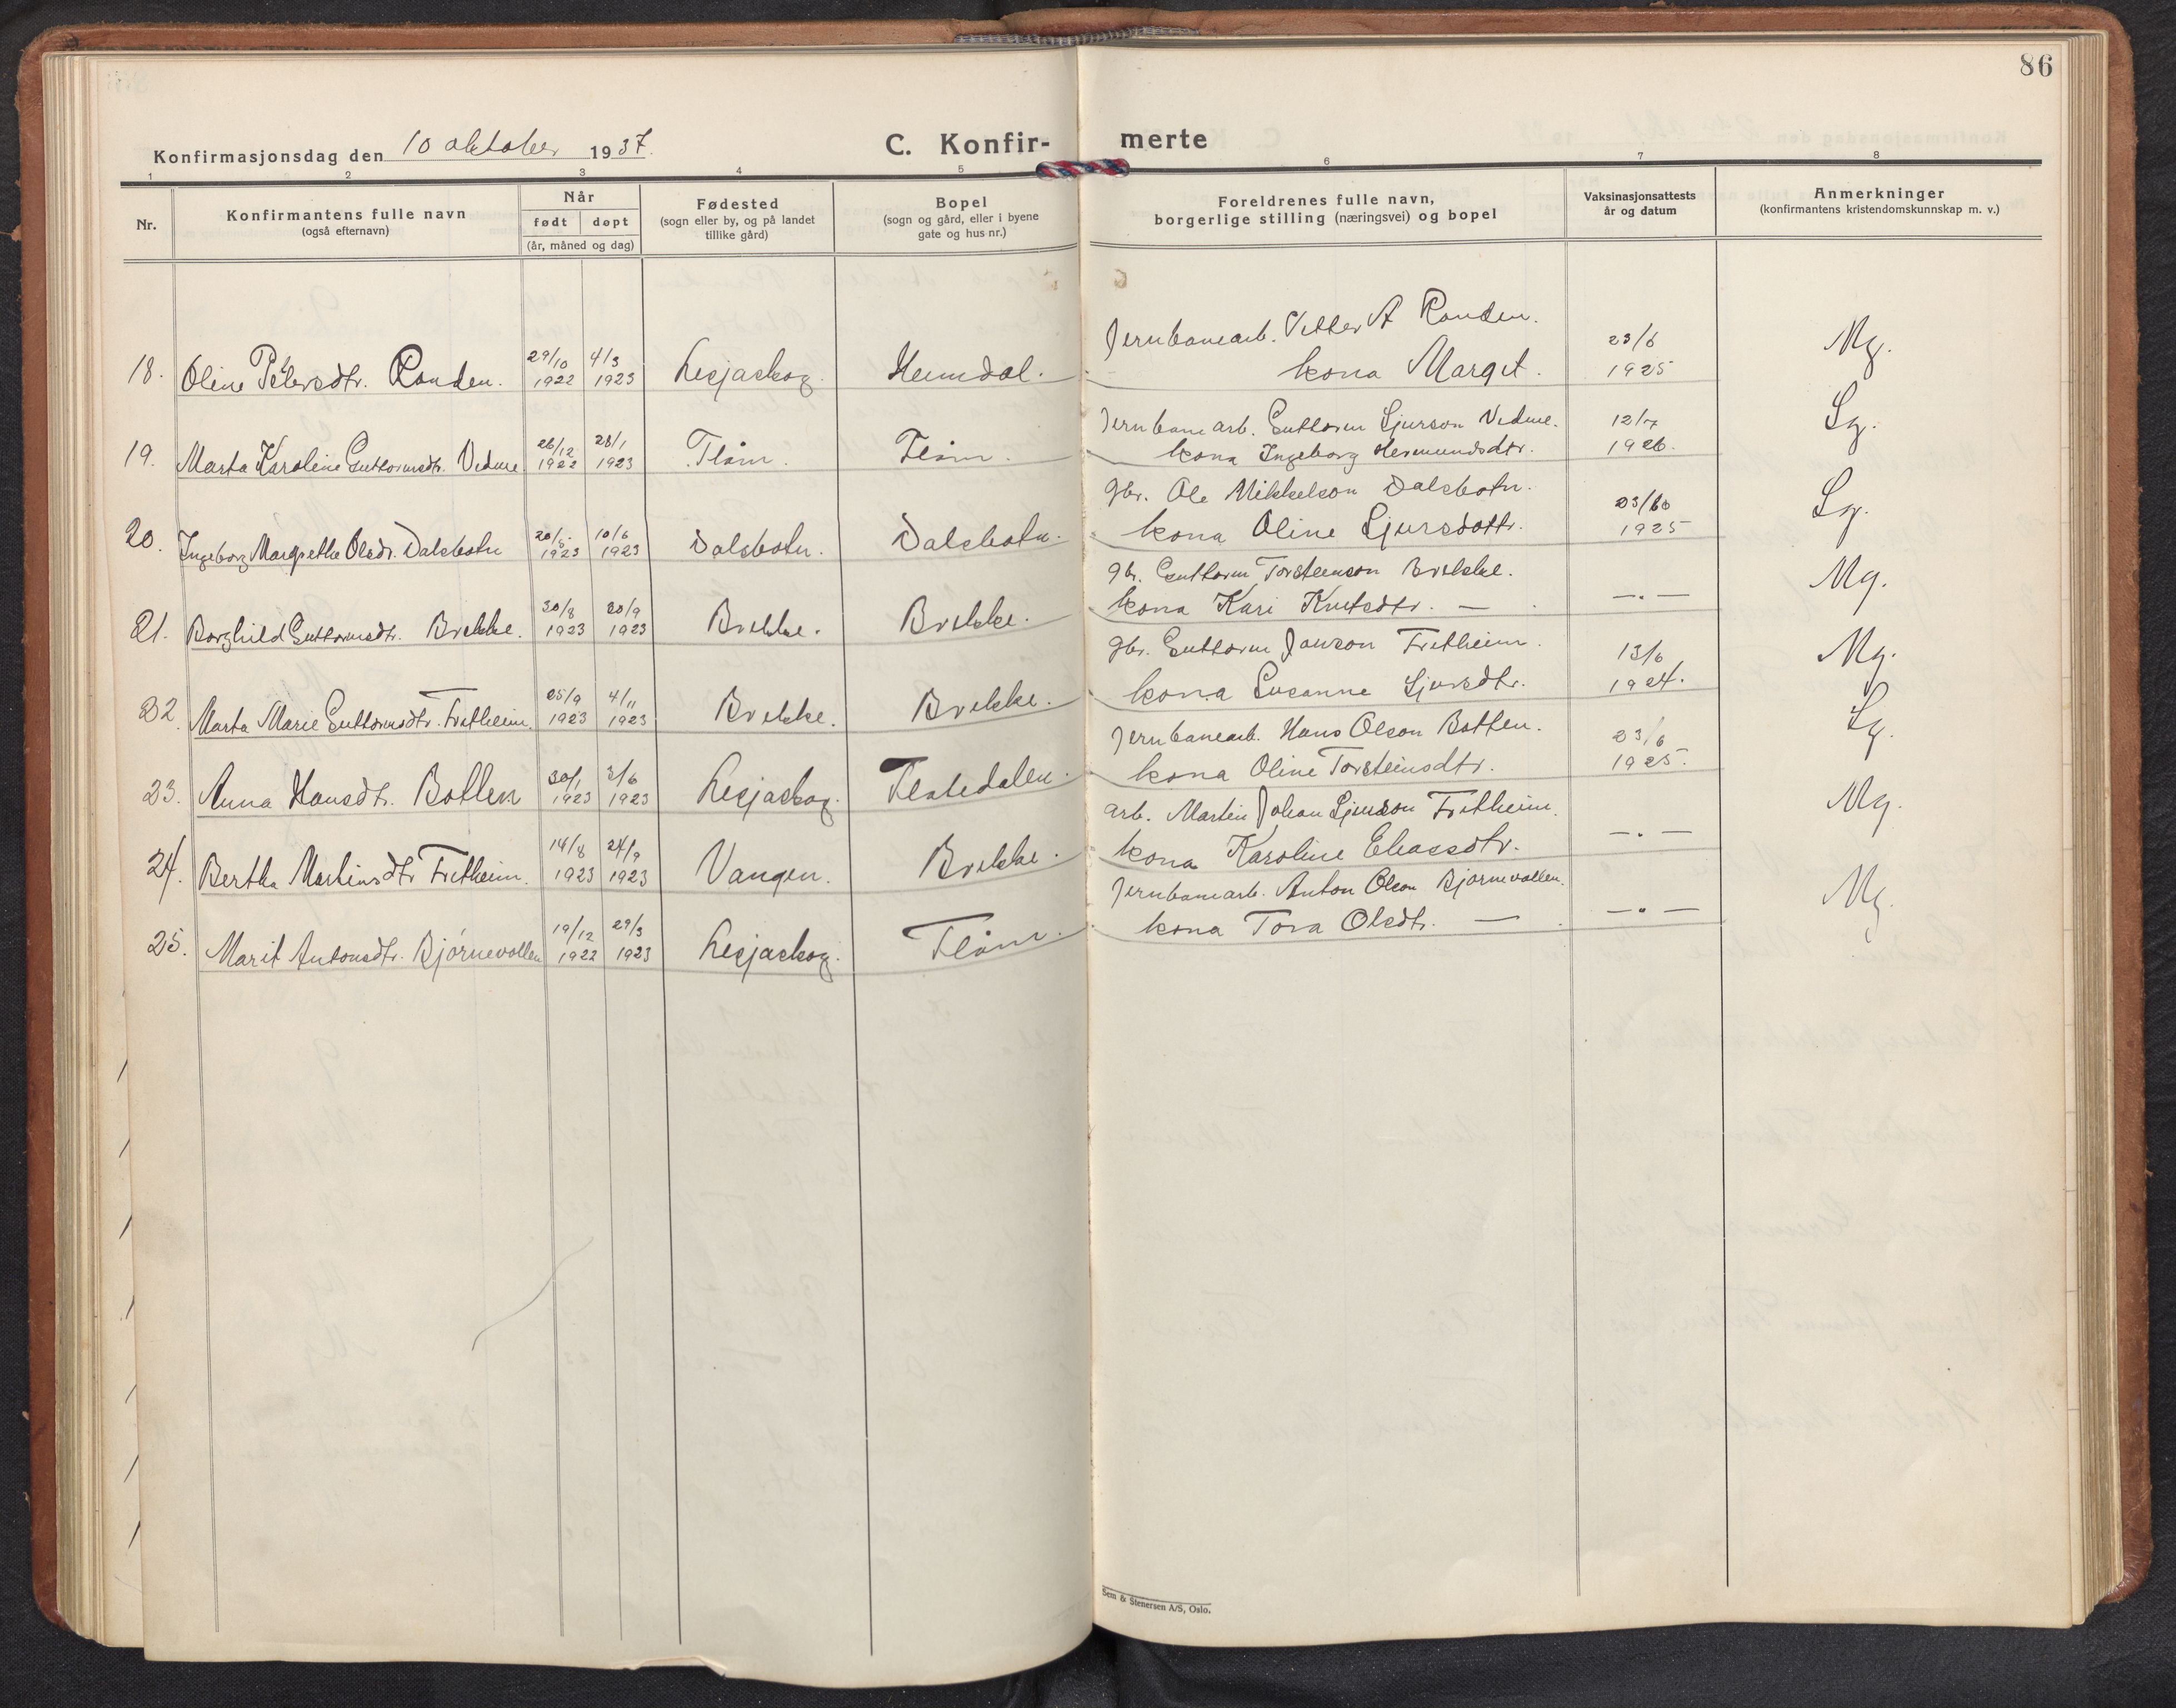 86
Konfirmasjonsdag den 10 oktober 1937.
C. Konfir- merte
1 2 3 4 5 6 7 8
Nr.
Konfirmantens fulle navn
(også efternavn)
Når
født døpt
(år, måned og dag)
Fødested
(sogn eller by, og på landet
tillike gård)
Bopel
(sogn og gård, eller i byene
gate og hus nr.)
Foreldrenes fulle navn,
borgerlige stilling (næringsvei) og bopel
Vaksinasjonsattests
år og datum
Anmerkninger
(konfirmantens kristendomskunnskap m. v.)
Jernbanearb. Petter A Randen.
18. Oline Petersdtr. Randen. 29/10 1922 4/3 1923 Lesjaskog. Heimdal. kona Margit. 23/6 1925 Mg.
Jernbanearb. Guttorm Sjurson Vidme.
19. Marta Karoline Guttormsdtr. Vidme 26/12 1922 28/1 1923 Flåm. Flåm. kona Ingeborg Hermundsdtr. 12/7 1926. Sg.
gbr. Ole Mikkelson Dalsbotn.
20. Ingeborg Margrethe Olsdr. Dalsbotn 20/5 1923 10/6 1923 Dalsbotn. Dalsbotn. kona Oline Sjursdottr. 23/10 1925 Sg.
gbr. Guttorm Torsteinson Brekke.
21. Borghild Guttormsdtr. Brekke. 30/8 1923 30/9 1923 Brekke. Brekke. kona Kari Knutsdtr. — —"— Mg.
gbr. Guttorm Janson Fretheim.
22. Marta Marie Guttormsdtr. Fretheim. 25/9 1923 4/11 1923 Brekke. Brekke. kona Susanne Sjursdtr. 13/6 1924. Mg.
Jernbanearb. Hans Olson Botten.
23. Anna Hansdtr. Botten 30/1 1923 3/6 1923 Lesjaskog. kona Oline Torsteinsdtr. 23/6 1925. Sg.
arb. Martin Johan Sjurson Fretheim.
24. Bertha Martinsdtr Fretheim. 14/8 1923 24/9 1923 Vangen. Brekke. kona Karoline Eliassdtr. —"— Mg.
Jernbanearb. Anton Olson Bjørnevollen.
25. Marit Antonsdtr. Bjørnevollen 19/12 1922 29/3 1923 Lesjaskog. Flåm. kona Tora Olsdtr. — —"— Mg.
Sem & Stenersen A/S, Oslo.